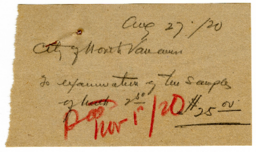 Aug 27 · /20
City of North Vancouver
To examination of two samples
of 2 50
$25 00
Paid
Nov 5/20